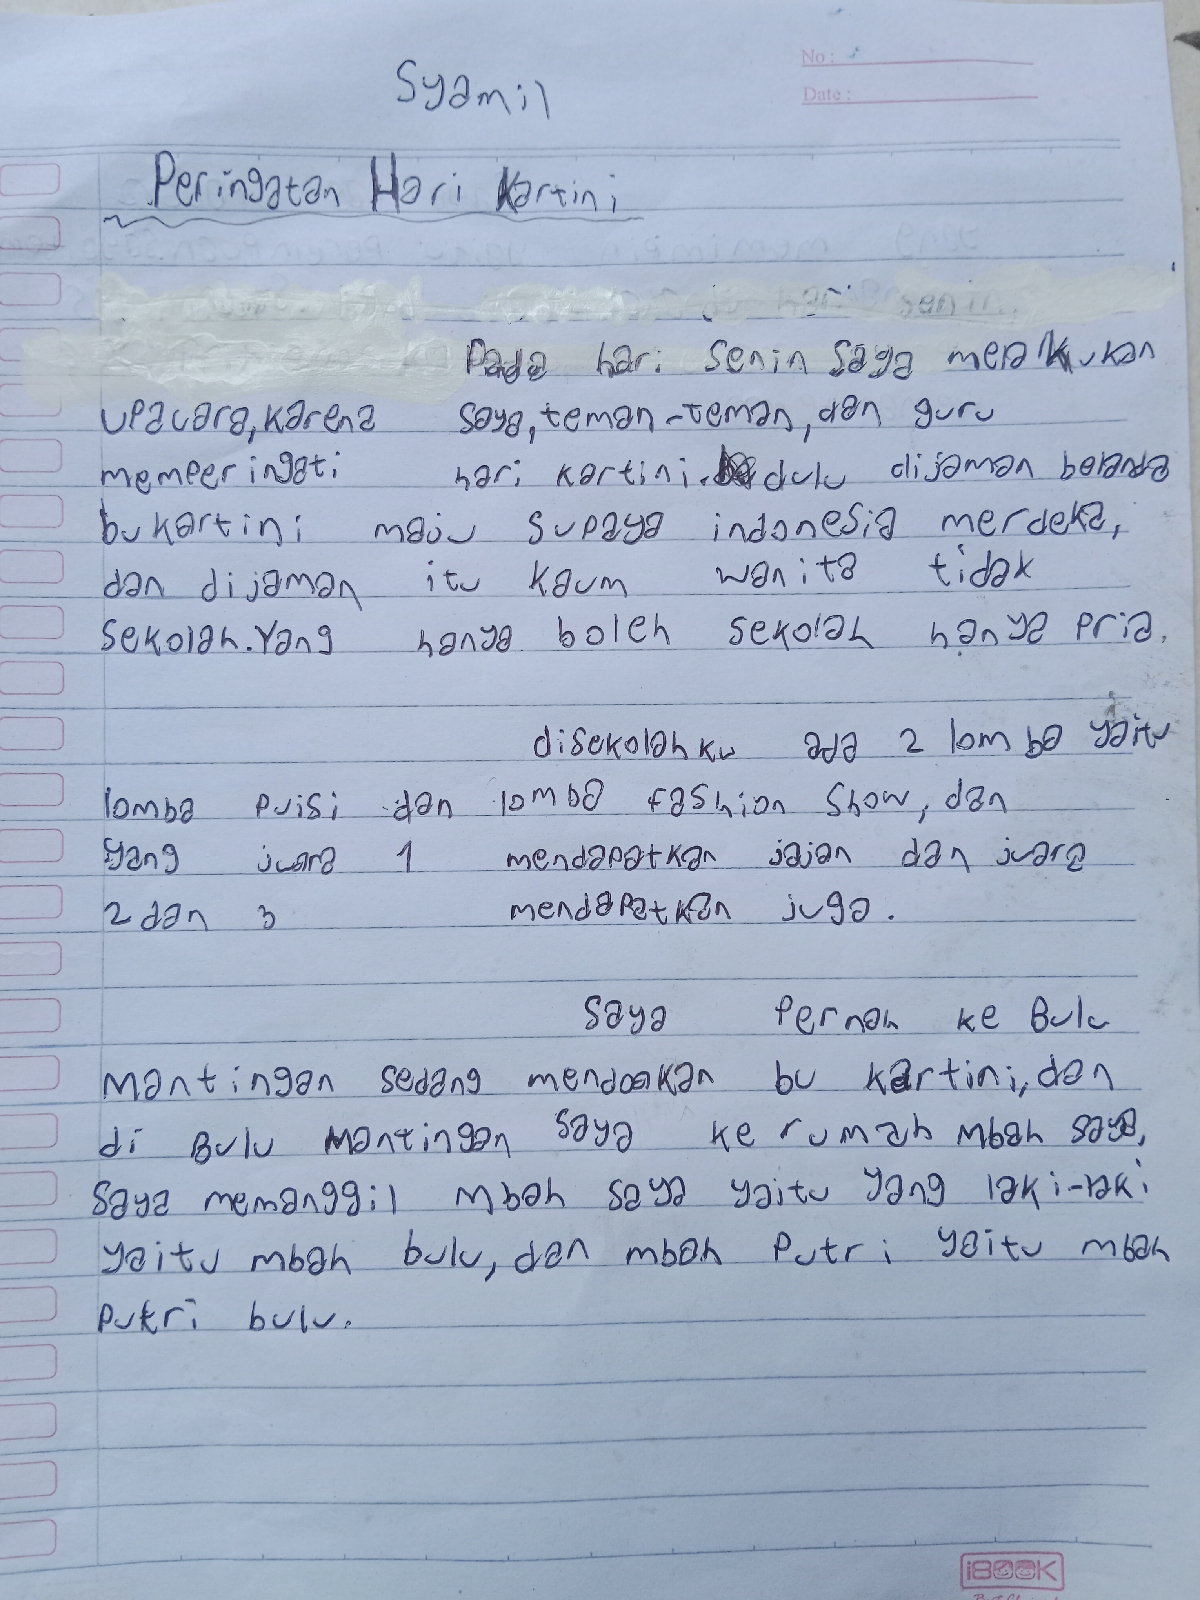 No :
Date :
Syamil
Peringatan Hari Kartini
senin
Pada hari senin saya melakukan
upacara, karena saya, teman-teman, dan guru
mempeeringati hari kartini. dulu dijaman belanda
bu kartini maju supaya indonesia merdeka,
dan dijaman itu kaum wanita tidak
sekolah. Yang hanya boleh sekolah hanya pria.
disekolahku ada 2 lomba yaitu
lomba puisi dan lomba fashion show, dan
yang juara 1 mendapatkan jajan dan juara
2 dan 3 mendapatkan juga.
Saya pernah ke Bulu
Mantingan sedang mendoakan bu kartini, dan
di Bulu Mantingan saya ke rumah mbah saya,
saya memanggil mbah saya yaitu yang laki-laki
yaitu mbah bulu, dan mbah putri yaitu mbah
putri bulu.
iBOOK